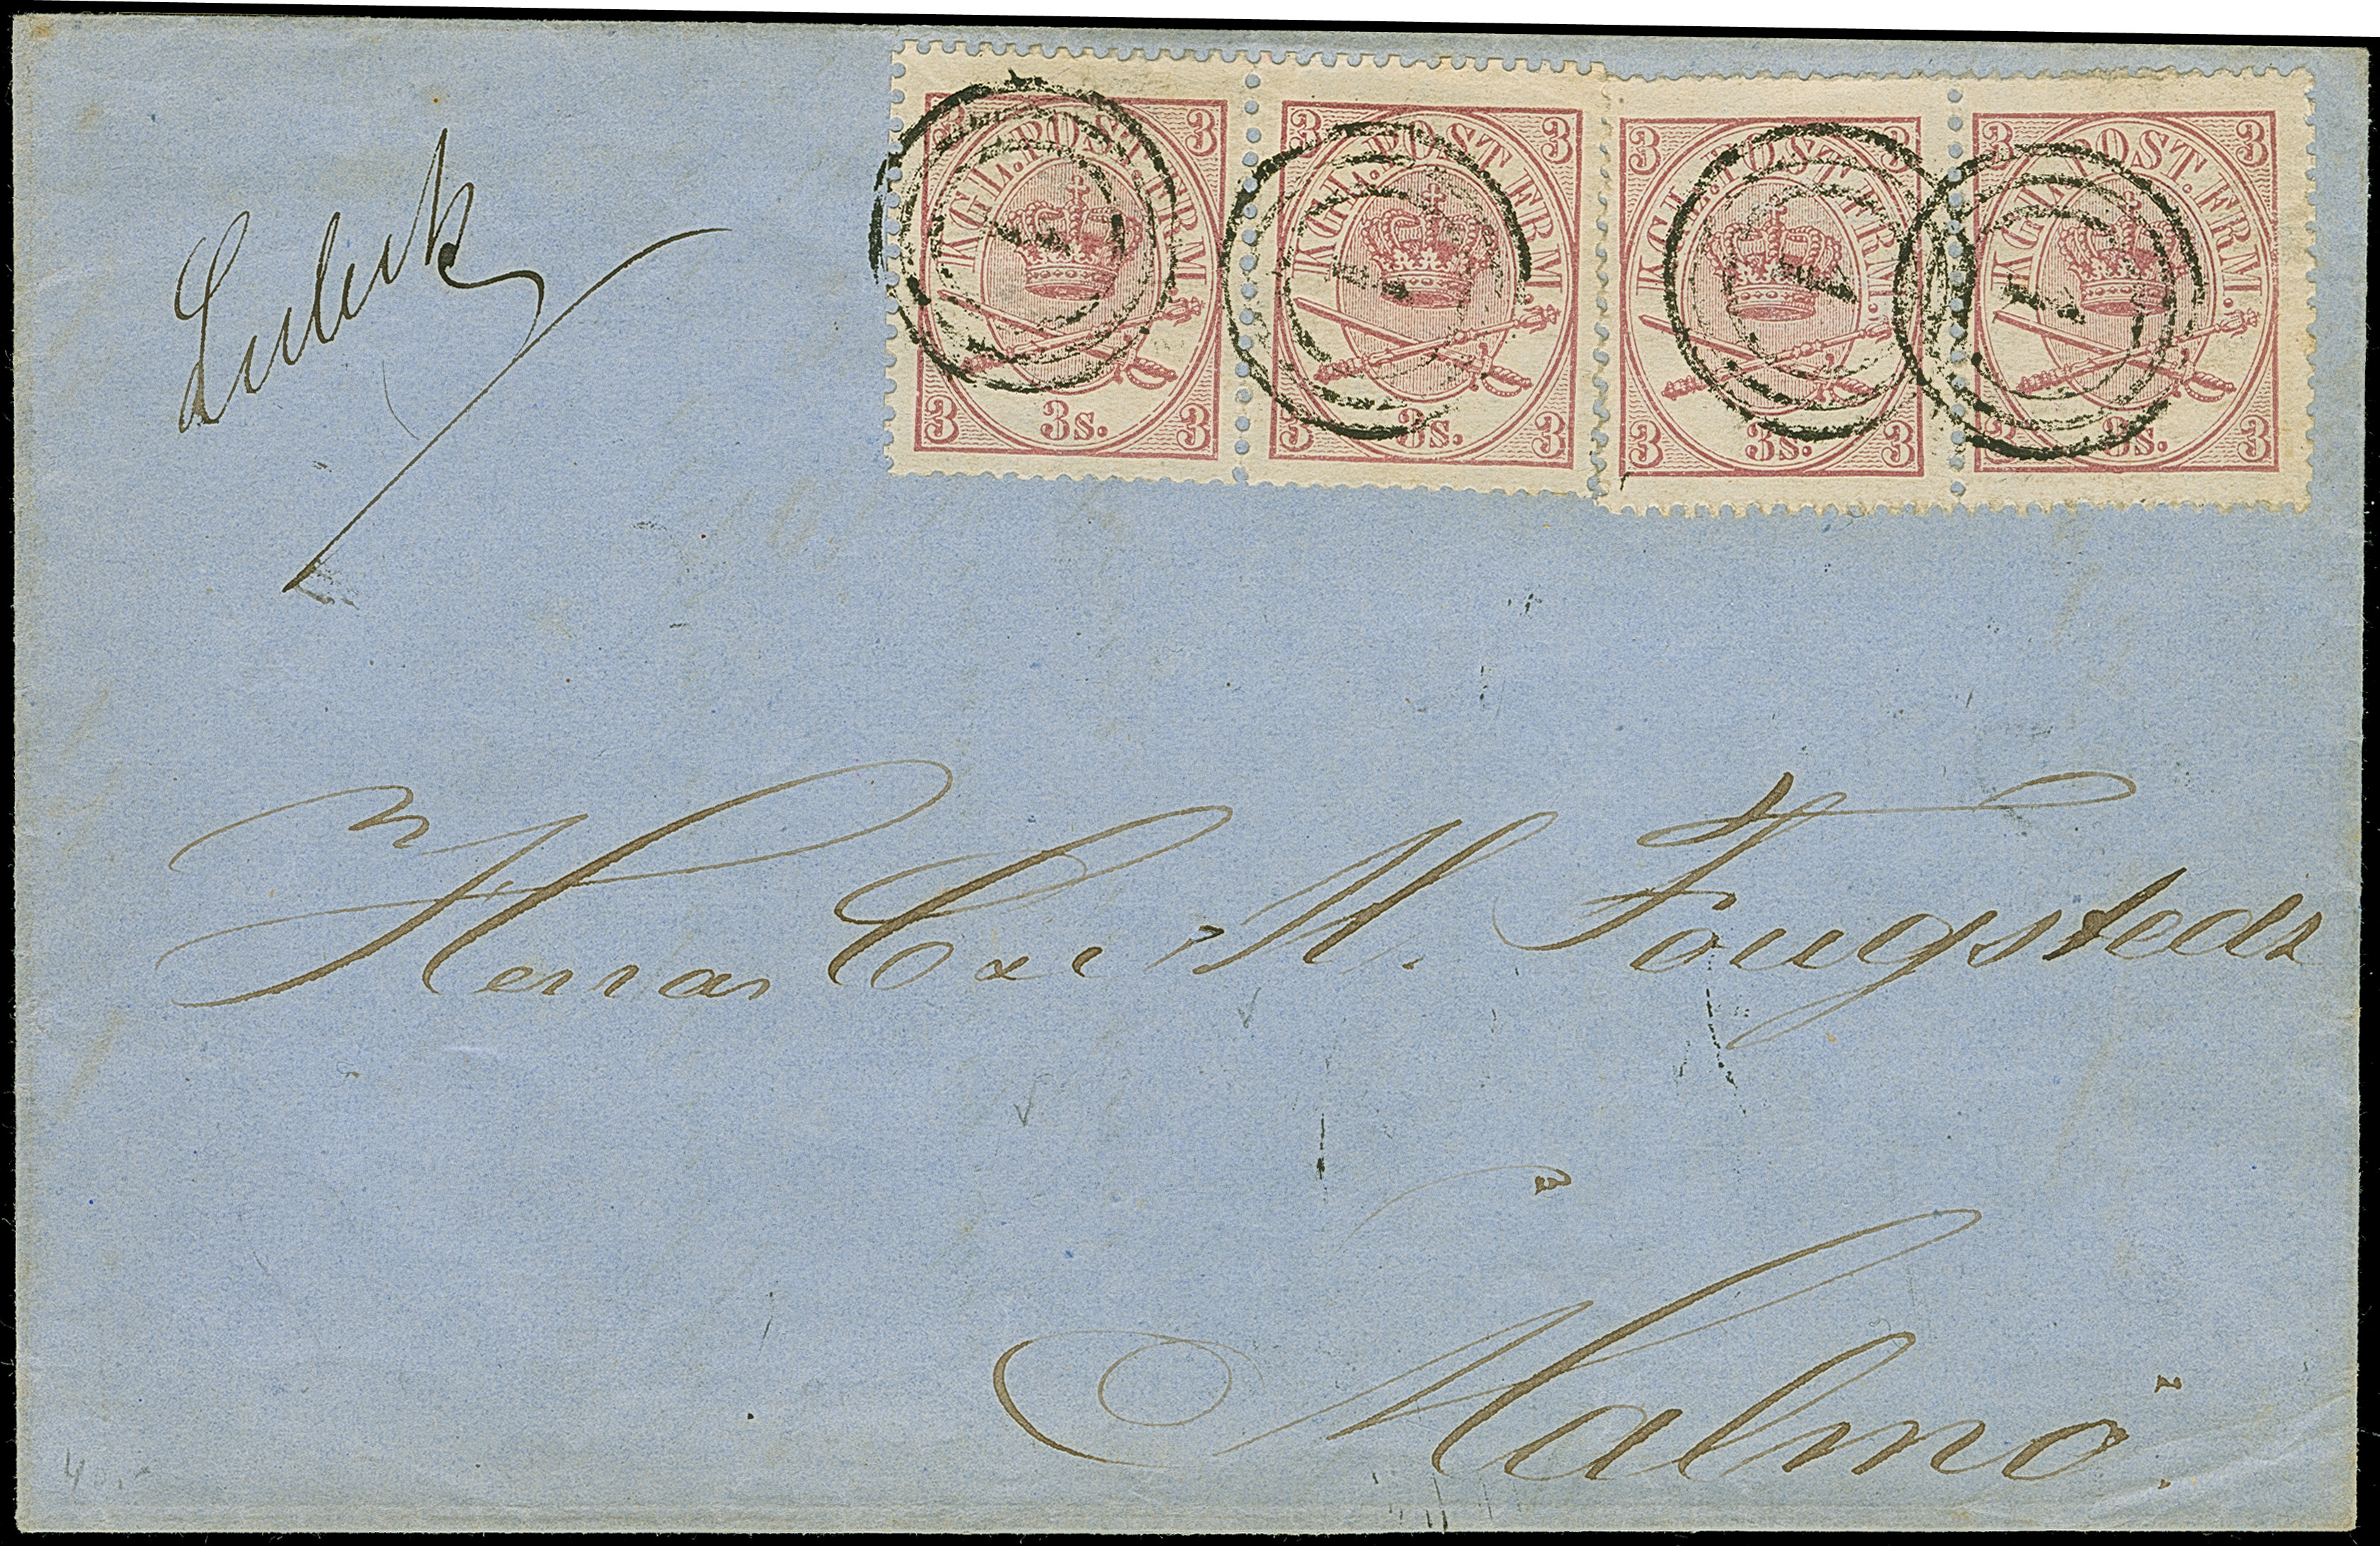 3 3 3 3 3 3 3 3
KGL. POST. FRM. KGL. POST. FRM. KGL. POST. FRM. KGL. POST. FRM.
1 1 1 1
3 3s. 3 3 3s. 3 3 3s. 3 3 3s. 3
Lubeck
Herrar C & M. Fougstedt
Malmö.
40.-